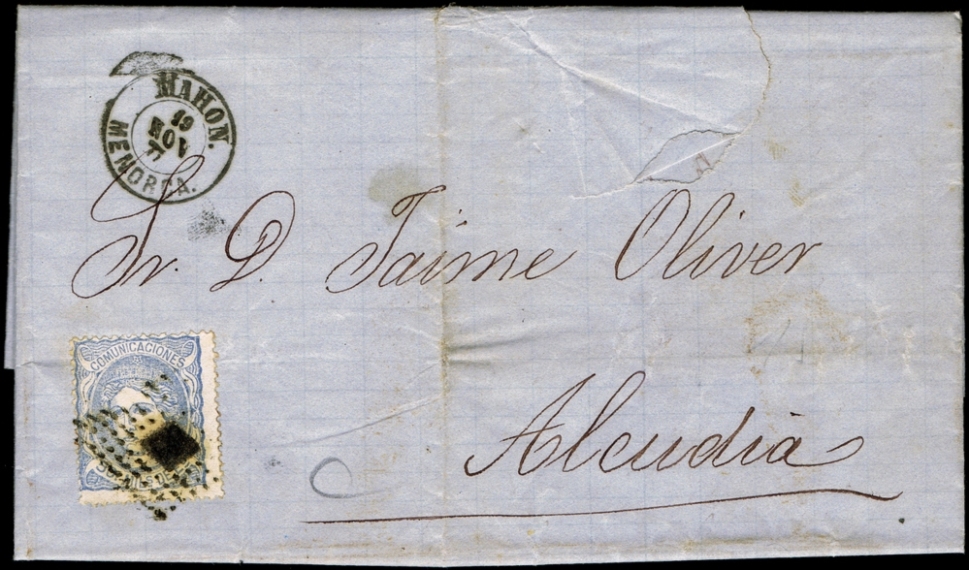 MAHON.
19
NOV
71
MENORCA.
Sr. D. Jaime Oliver
COMUNICACIONES
Alcudia